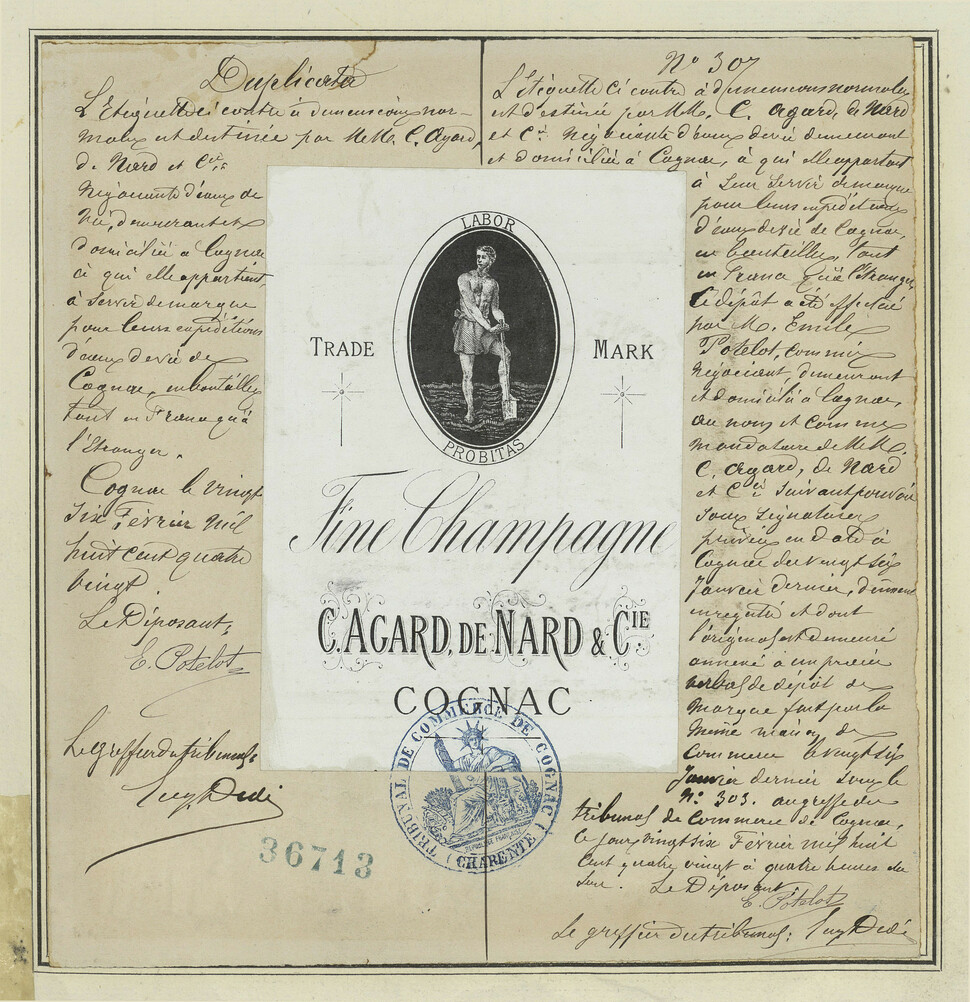 Duplicata
L'Etiquette ci contre à dimensions nor-
males est destinée par M.M. C. Agard,
de Nard et Cie
Négociants d'eaux de
vie, demeurant et
domiciliés à Cognac
à qui elle appartient
à servir de marque
pour leurs expéditions
d'eaux de vie de
Cognac, en bouteilles
tant en France qu'à
l'étranger.
Cognac le vingt
six Février mil
huit cent quatre
vingt.
Le Déposant,
E. Potelot
Le greffier du tribunal:
36713
LABOR
TRADE MARK
PROBITAS
Fine Champagne
C. AGARD, DE NARD & CIE
COGNAC
TRIBUNAL DE COMMERCE DE COGNAC
(CHARENTE)
REPUBLIQUE FRANÇAISE
No 307
L'étiquette ci contre à dimensions normales
est destinée par M.M. C. Agard, de Nard
et Cie Négociants d'eaux de vie demeurant
et domiciliés à Cognac, à qui elle appartient
à leur servir de marque
pour leurs expéditions
d'eaux de vie de Cognac,
en bouteilles, tant
en France qu'à l'étranger.
Le dépôt a été effectué
par M. Emile
Potelot, commis
négociant, demeurant
et domicilié à Cognac,
au nom et comme
mandataire de M.M.
C. Agard, de Nard
et Cie suivant pouvoir
sous signatures
privées en date à
Cognac du vingt six
Janvier dernier, dûment
enregistré et dont
l'original est demeuré
annexé à un procès
verbal de dépôt de
marque fait par la
même maison de
commerce le vingt six
Janvier dernier sous le
No 303. au greffe du
tribunal de Commerce de Cognac,
ce jour vingt six Février mil huit
cent quatre vingt à quatre heures du
soir. Le Déposant,
E. Potelot
Le greffier du tribunal: